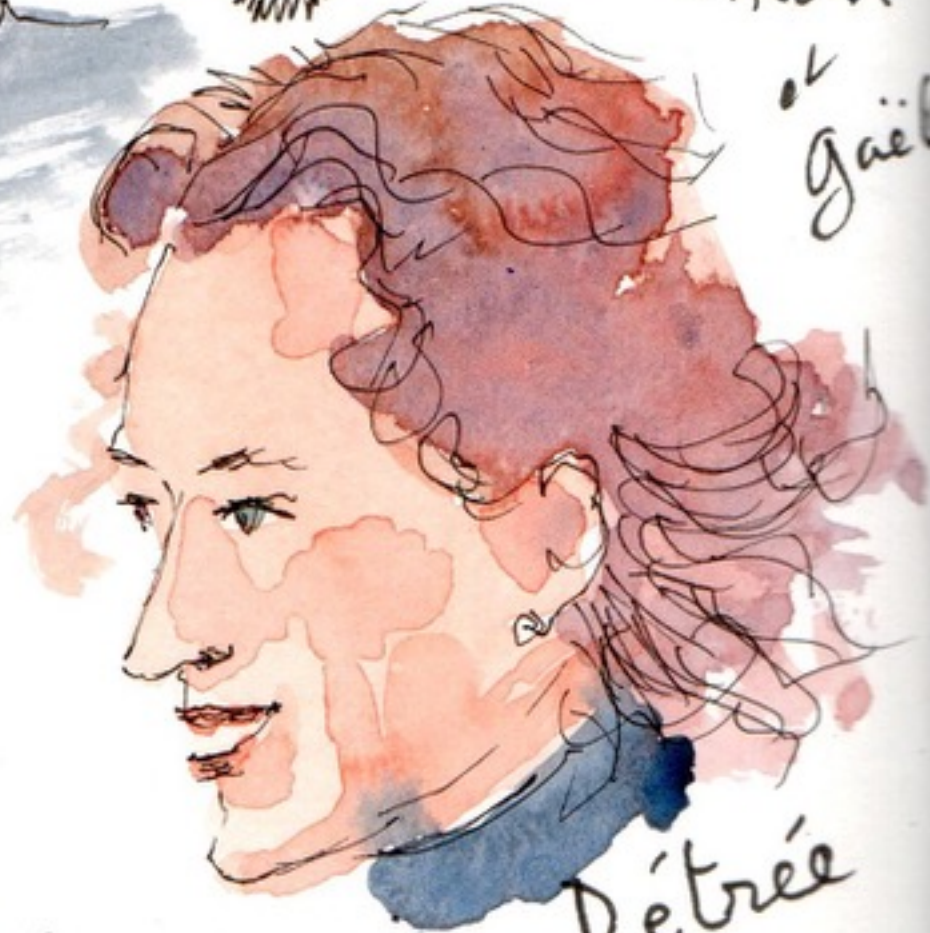 et
Gaë
Détrée